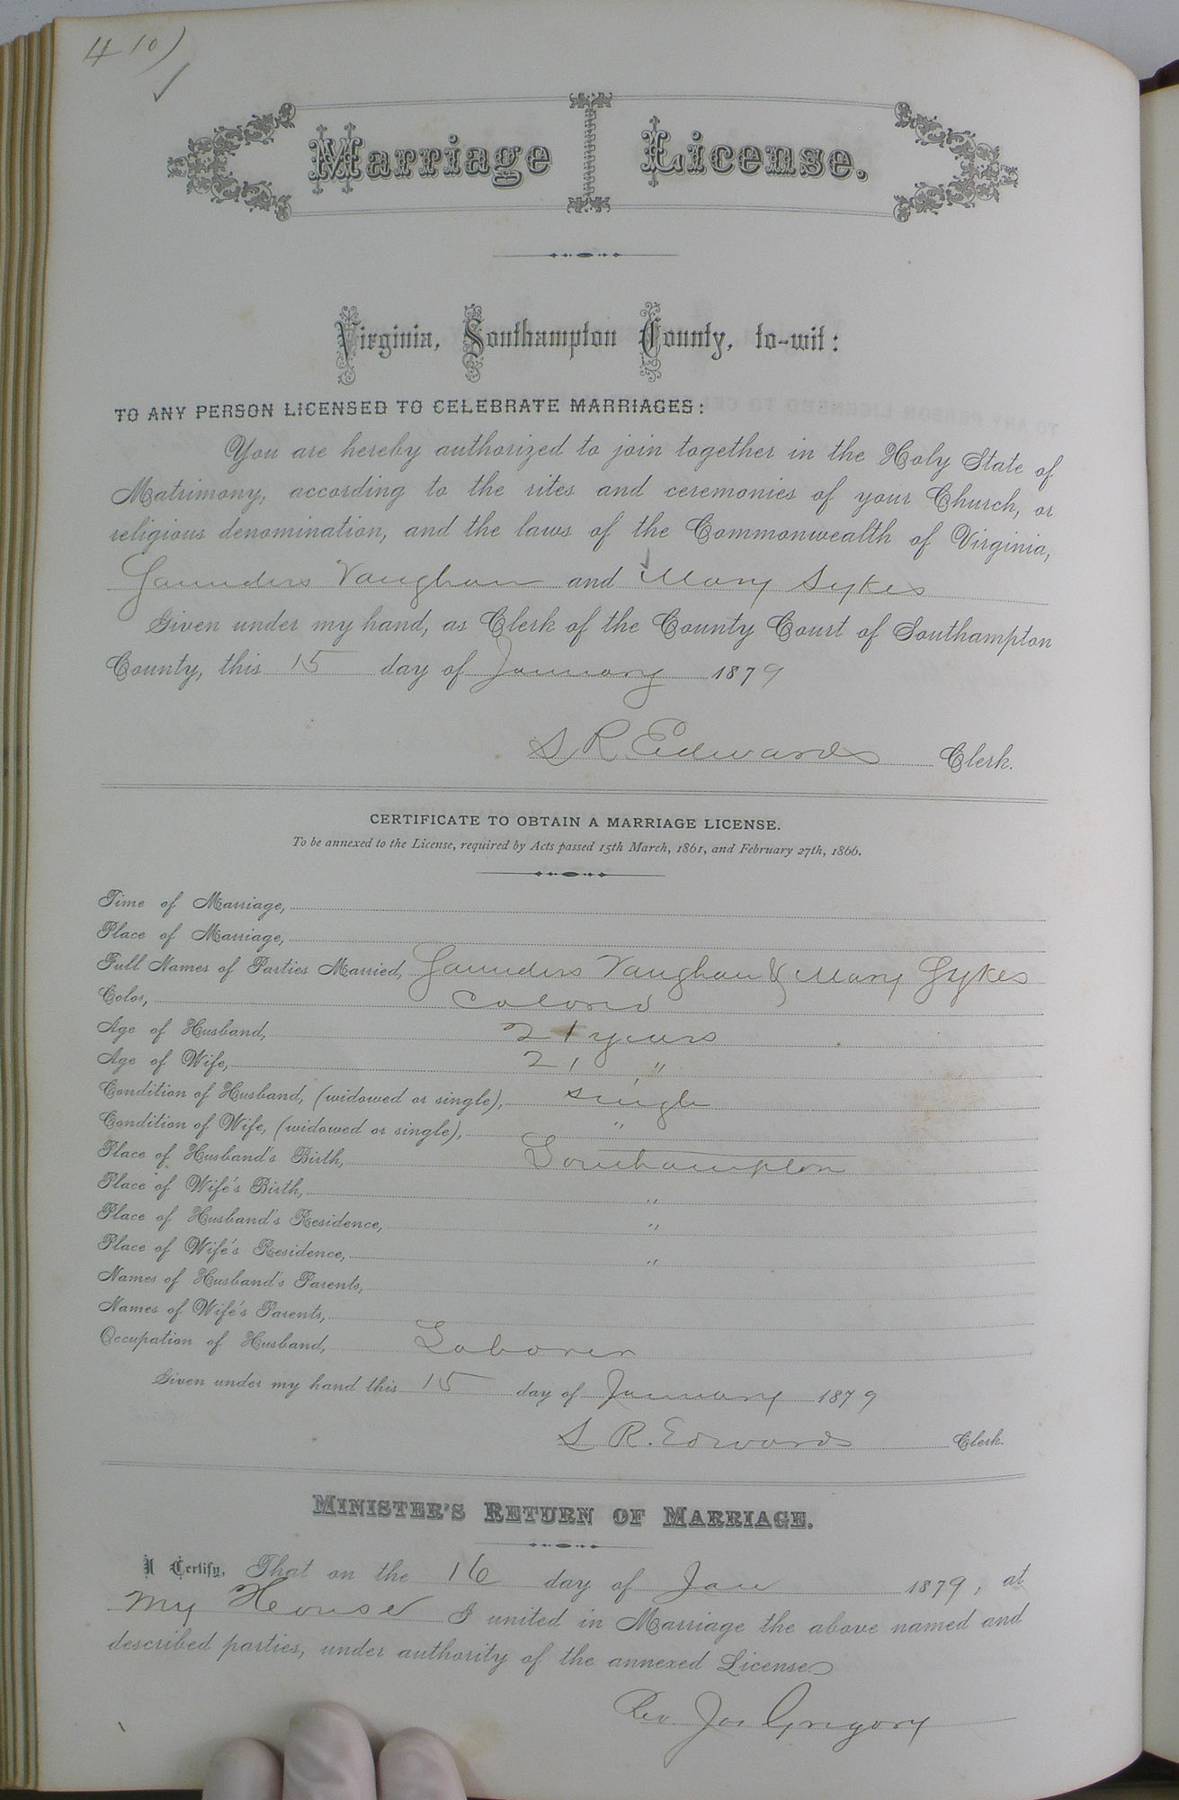 4 10)
Marriage License.
Virginia, Southampton County, to-wit:
TO ANY PERSON LICENSED TO CELEBRATE MARRIAGES:
You are hereby authorized to join together in the Holy State of
Matrimony, according to the rites and ceremonies of your Church, or
religious denomination, and the laws of the Commonwealth of Virginia,
Saunders Vaughan and Mary Sykes
Given under my hand, as Clerk of the County Court of Southampton
County, this 15 day of January 1879
S R. Edwards Clerk.
CERTIFICATE TO OBTAIN A MARRIAGE LICENSE.
To be annexed to the License, required by Acts passed 15th March, 1861, and February 27th, 1866.
Time of Marriage,
Place of Marriage,
Full Names of Parties Married, Saunders Vaughan & Mary Sykes
Color, Colord
Age of Husband, 21 years
Age of Wife, 21 "
Condition of Husband, (widowed or single), single
Condition of Wife, (widowed or single), "
Place of Husband's Birth, Southampton
Place of Wife's Birth, "
Place of Husband's Residence, "
Place of Wife's Residence, "
Names of Husband's Parents,
Names of Wife's Parents,
Occupation of Husband, Laborer
Given under my hand this 15 day of January 1879
S R. Edwards Clerk.
MINISTER'S RETURN OF MARRIAGE.
I Certify, That on the 16 day of Jan 1879, at
My House I united in Marriage the above named and
described parties, under authority of the annexed License
Rev Jos Gregory